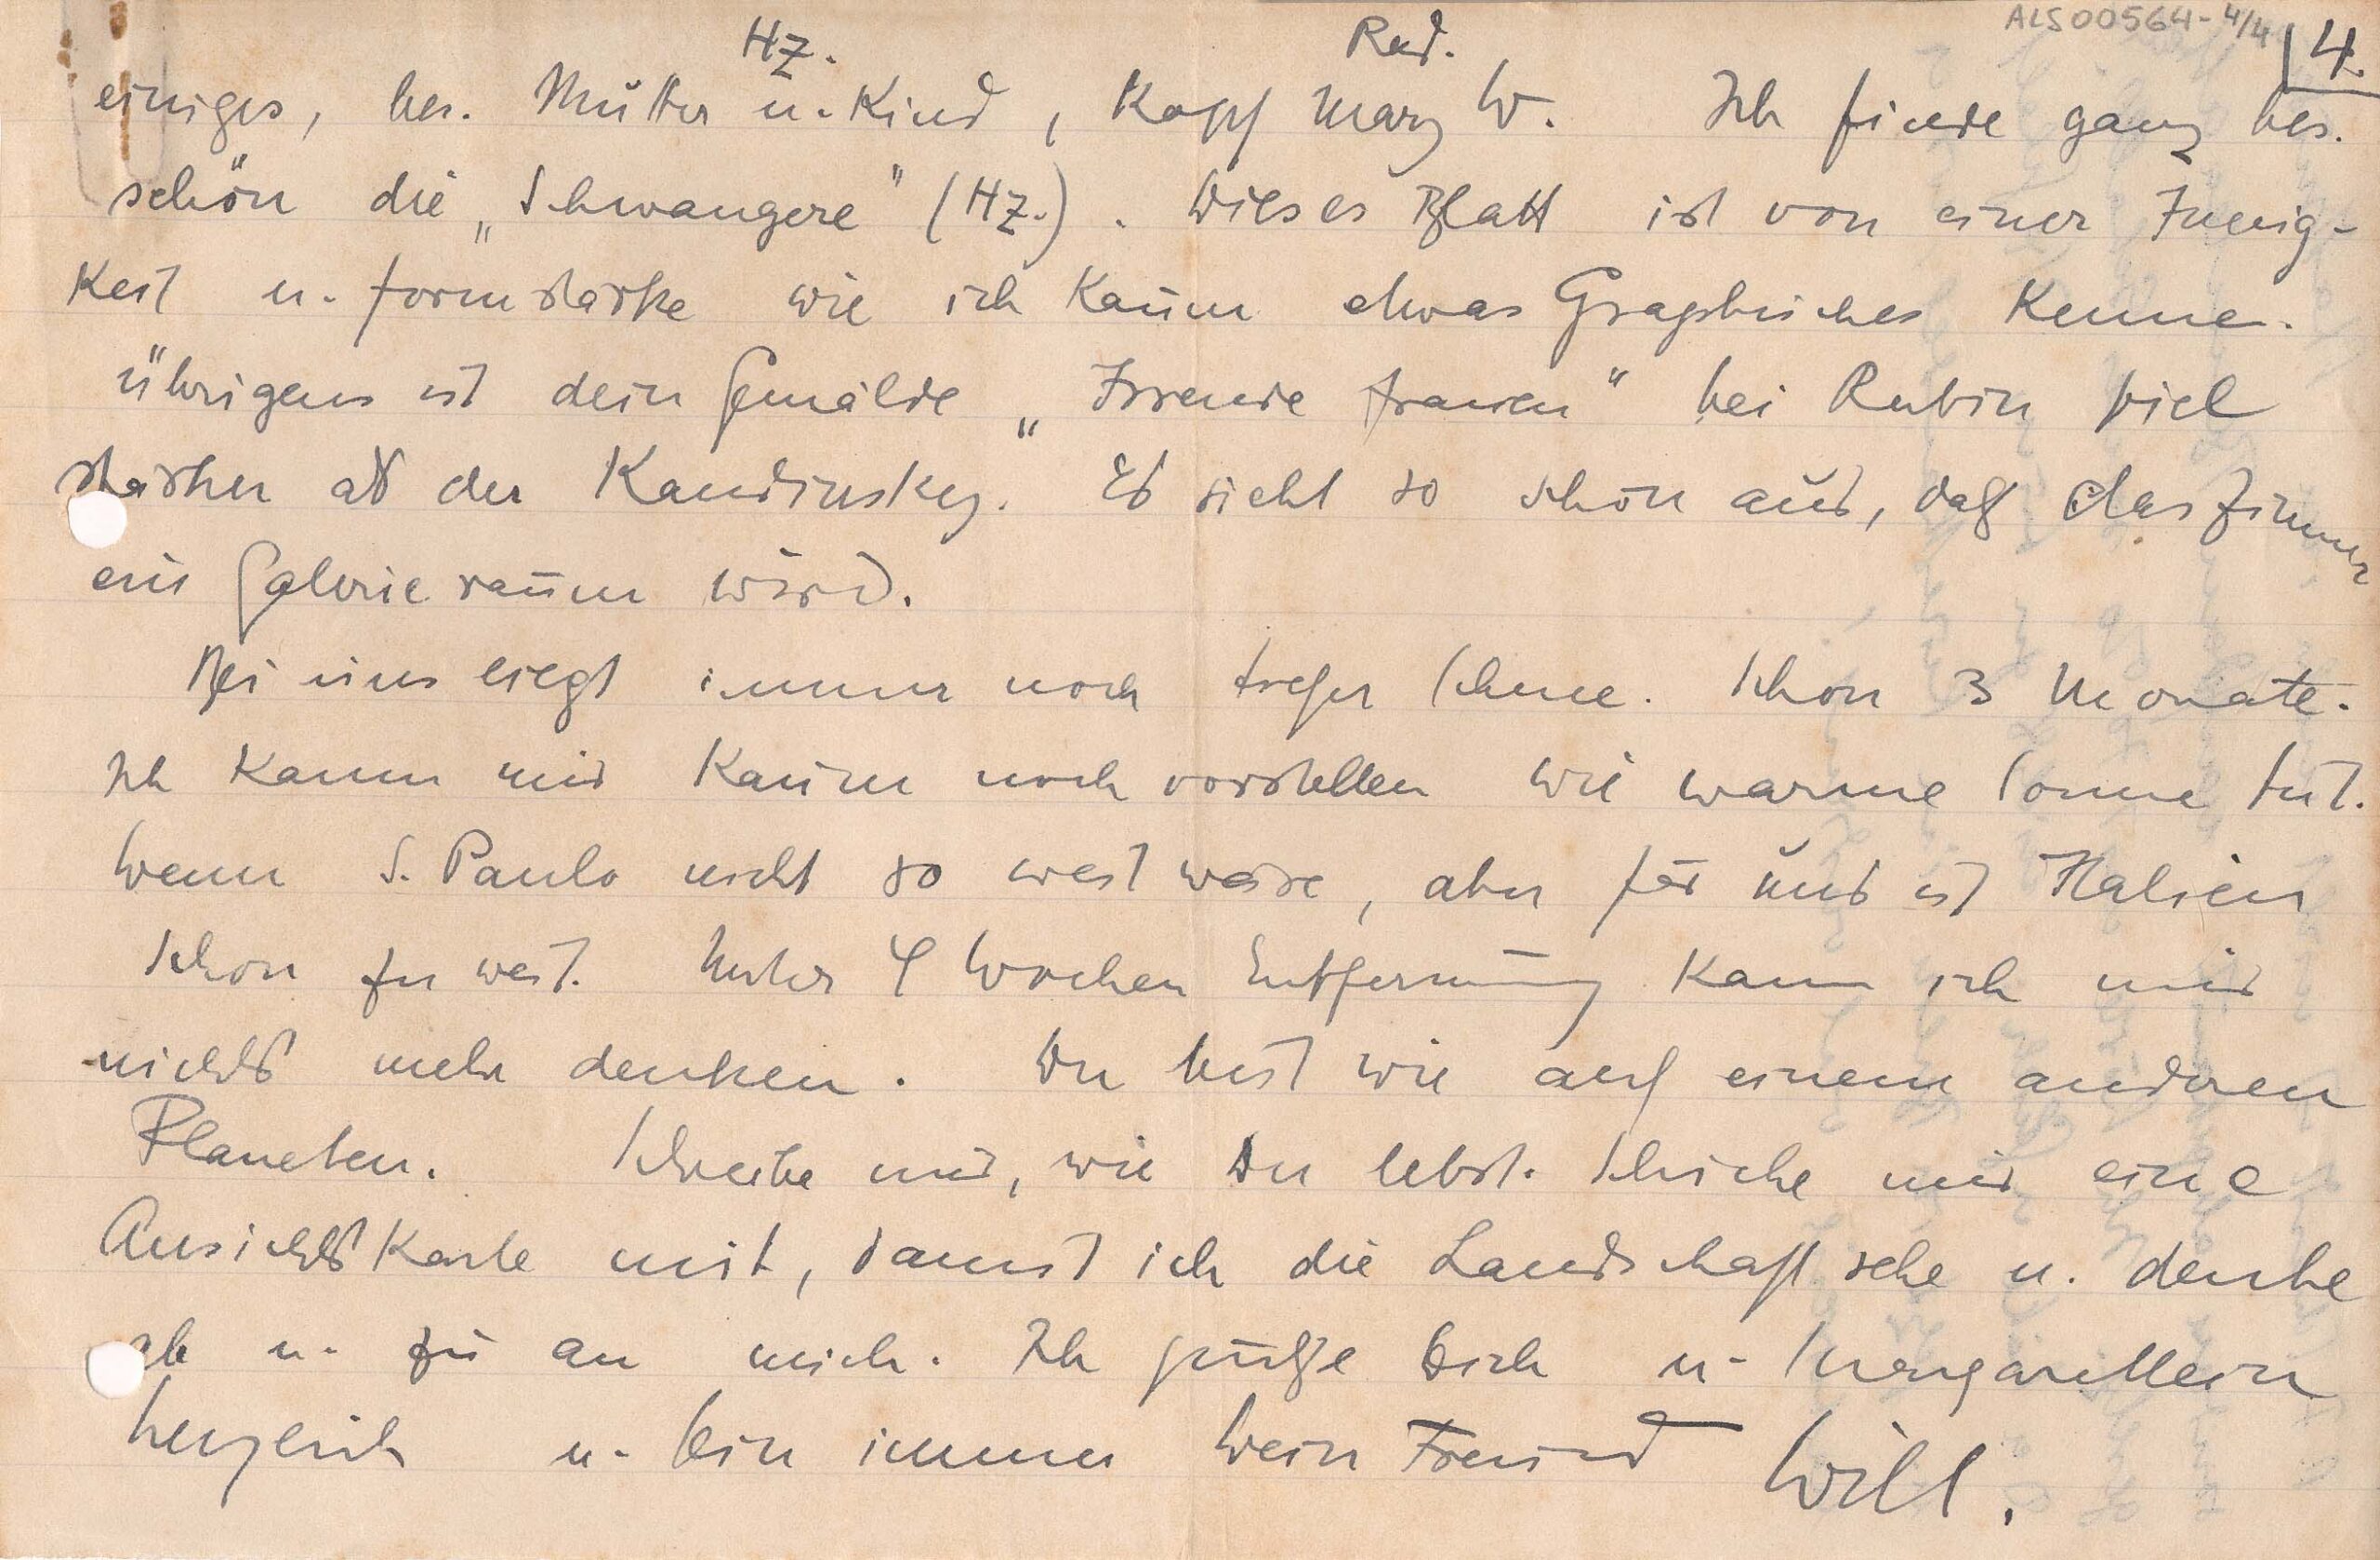 ALS00564-4/4
4.
Hz. Rad.
einiges, bes. Mutter u. Kind, Kopf Mary W. Ich finde ganz bes.
schön die „Schwangere" (Hz.). Dieses Blatt ist von einer Innig-
keit u. Formstärke wie ich kaum etwas Graphisches kenne.
Übrigens ist dein Gemälde „Irrende Frauen" bei Rubin viel
stärker als der Kandinsky. Es sieht so schön aus, daß das Zimmer
ein Galerieraum wird.
Bei uns liegt immer noch tiefer Schnee. Schon 3 Monate.
Ich kann mir kaum noch vorstellen wie warme Sonne tut.
Wenn S. Paulo nicht so weit wäre, aber für uns ist Italien
schon zu weit. Unter 4 Wochen Entfernung kann ich mir
nichts mehr denken. Du bist wie auf einem anderen
Planeten. Schreibe mir, wie Du lebst. Schicke mir eine
Ansichtskarte mit, damit ich die Landschaft sehe u. denke
ab u. zu an mich. Ich grüße Dich u.
herzlich u. bin immer Dein Freund Will.